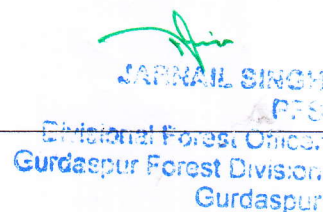 JARNAIL SINGH
PFS
Divisional Forest Officer
Gurdaspur Forest Division
Gurdaspur